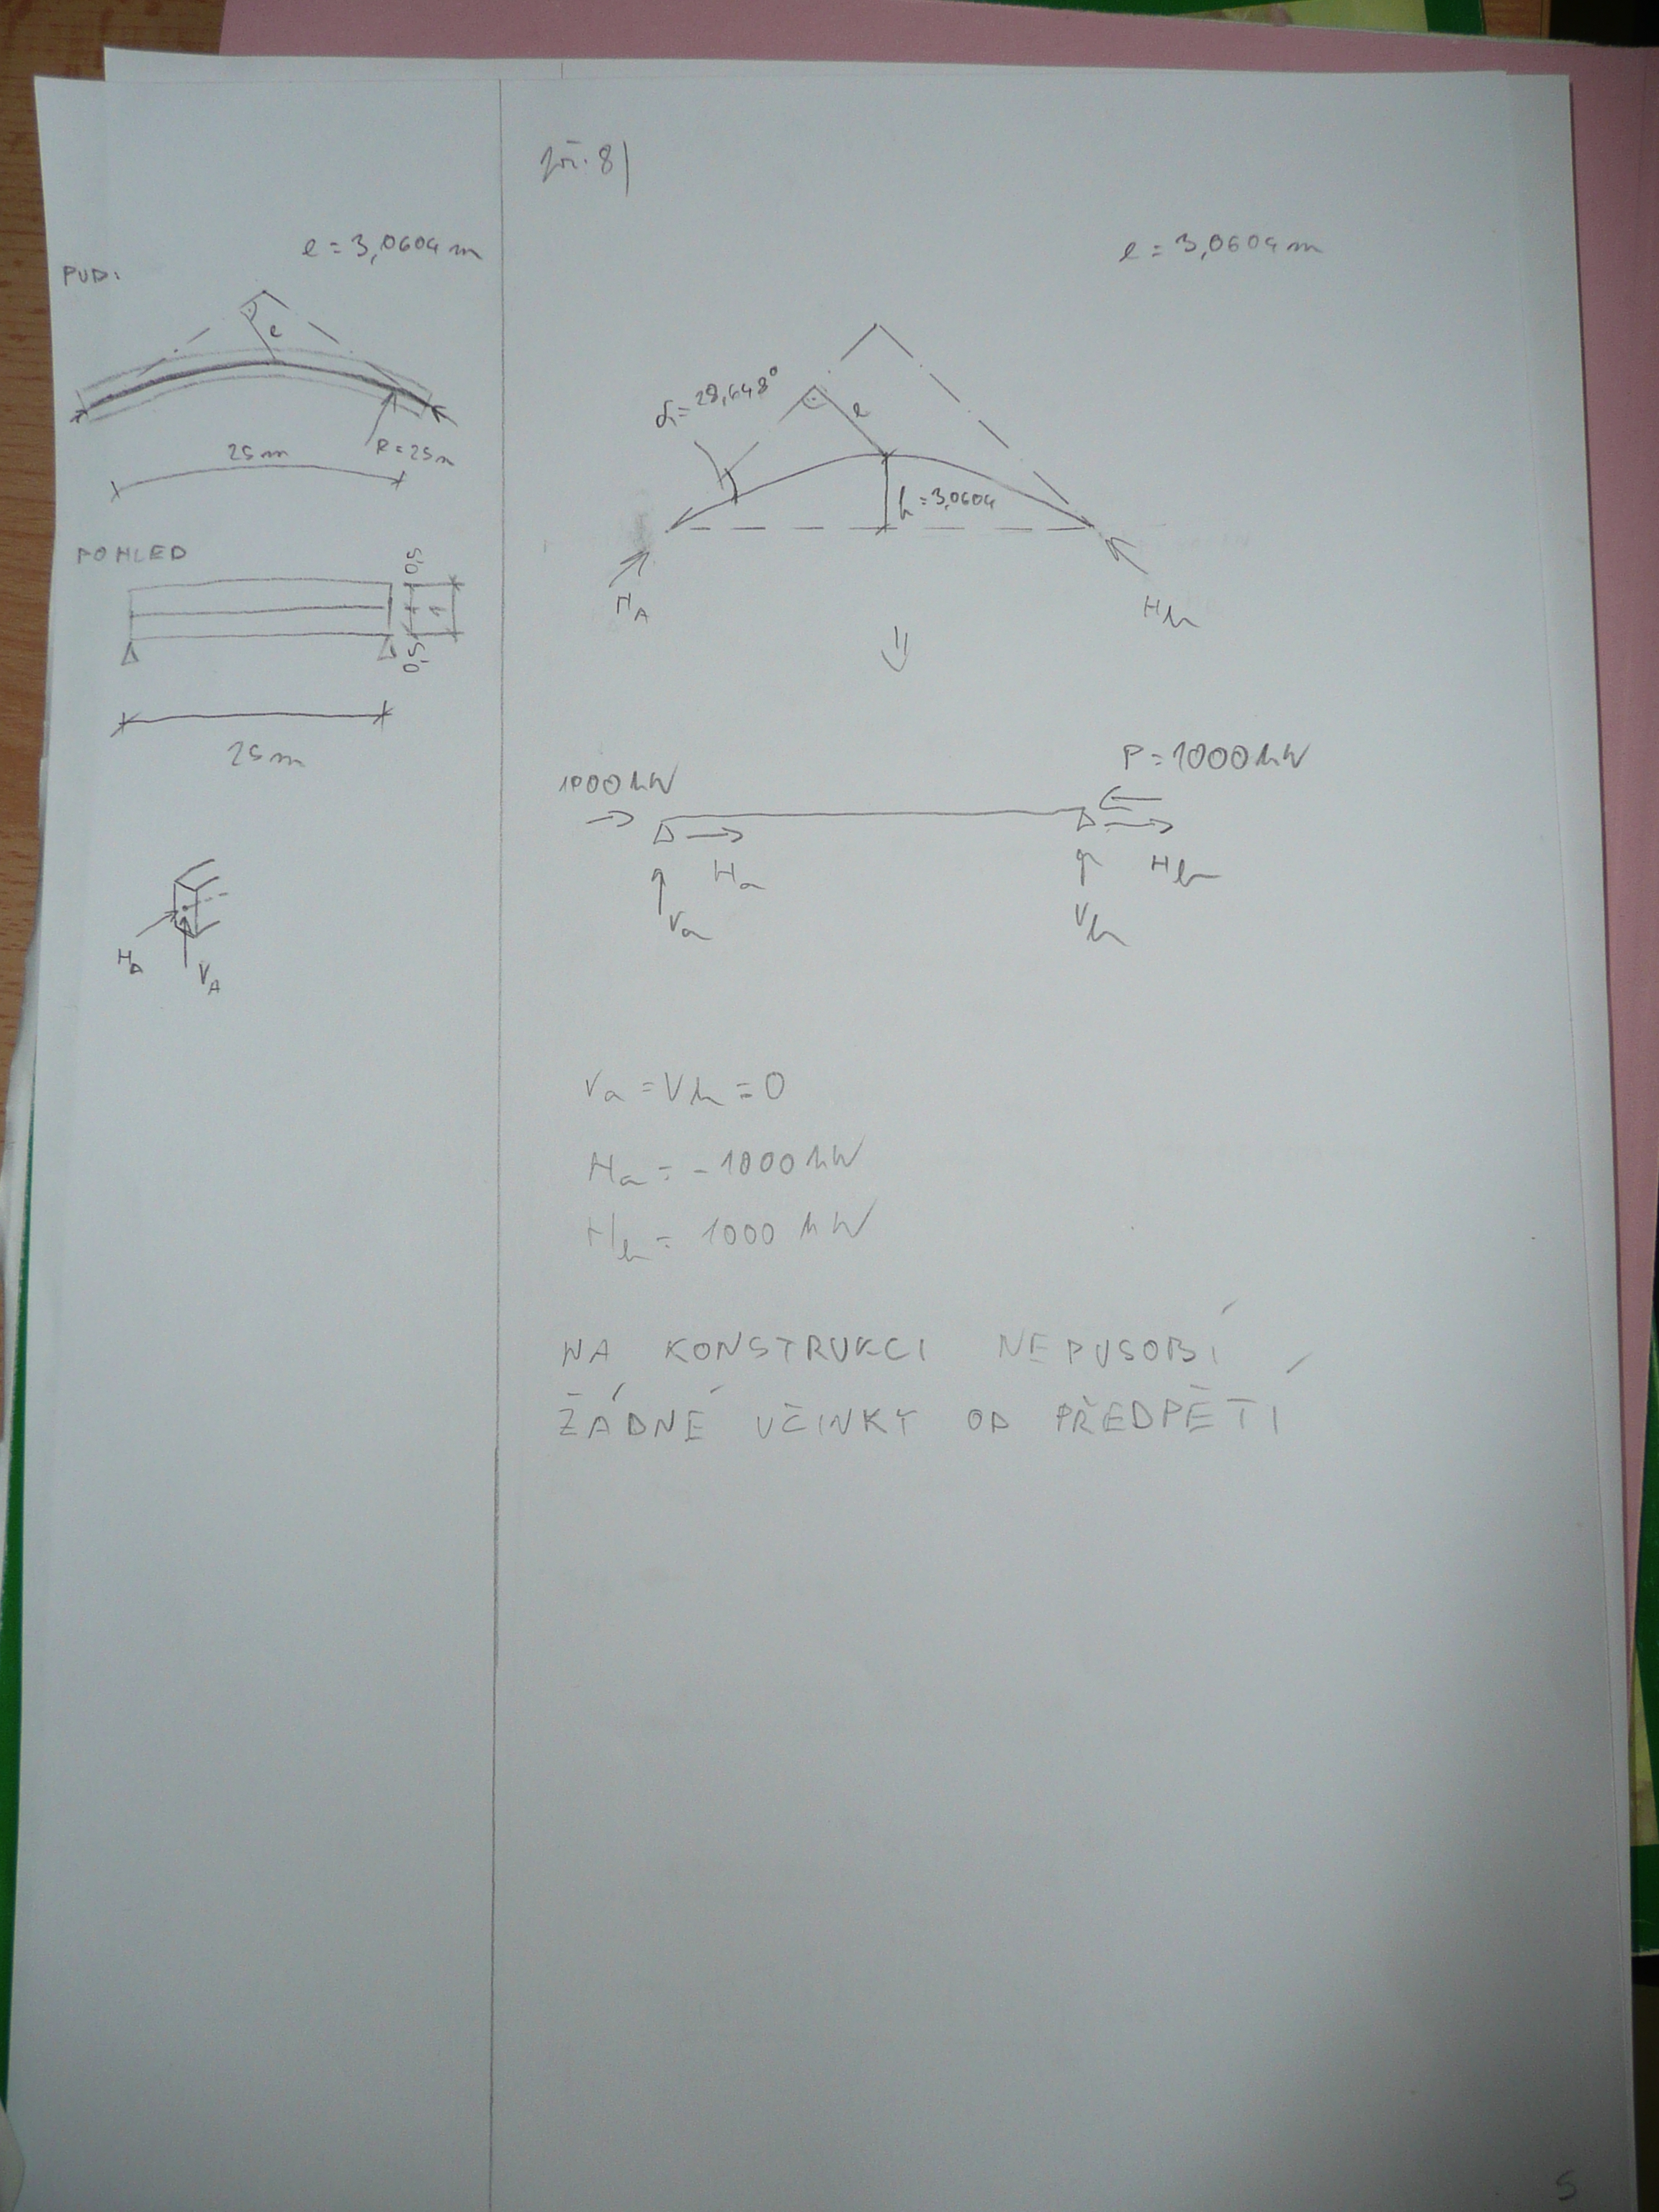 př. 8)
e = 3,0604 m
PŮD:
e
R = 25m
25m
POHLED
0,5
1
0,5
25m
H_A
V_A
e = 3,0604 m
α = 28,648°
e
h = 3,0604
H_A
H_b
1000 kN
P = 1000 kN
H_a
H_b
V_a
V_b
V_a = V_b = 0
H_a = -1000 kN
H_b = 1000 kN
NA KONSTRUKCI NEPUSOBÍ
ŽÁDNÉ ÚČINKY OD PŘEDPĚTÍ
5